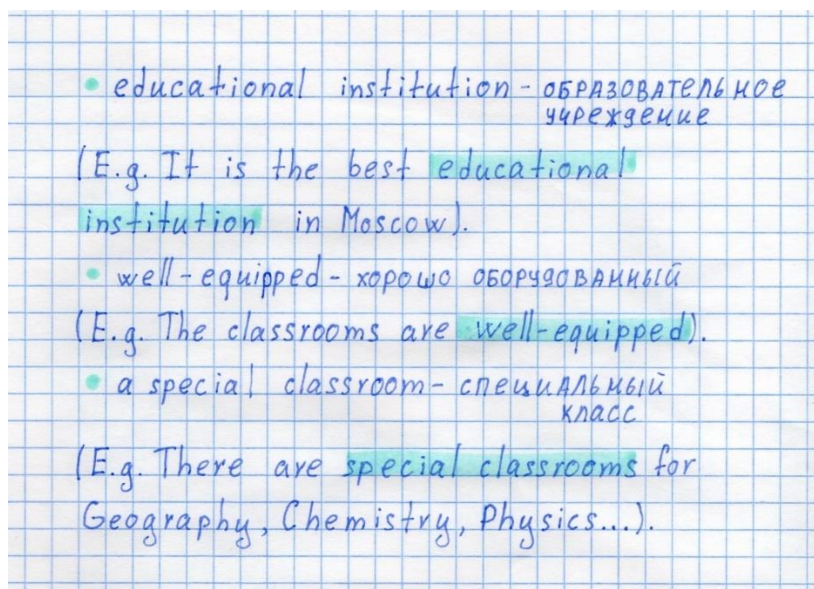 • educational institution - образовательное
учреждение
(E.g. It is the best educational
institution in Moscow).
• well-equipped - хорошо оборудованный
(E.g. The classrooms are well-equipped).
• a special classroom - специальный
класс
(E.g. There are special classrooms for
Geography, Chemistry, Physics...).